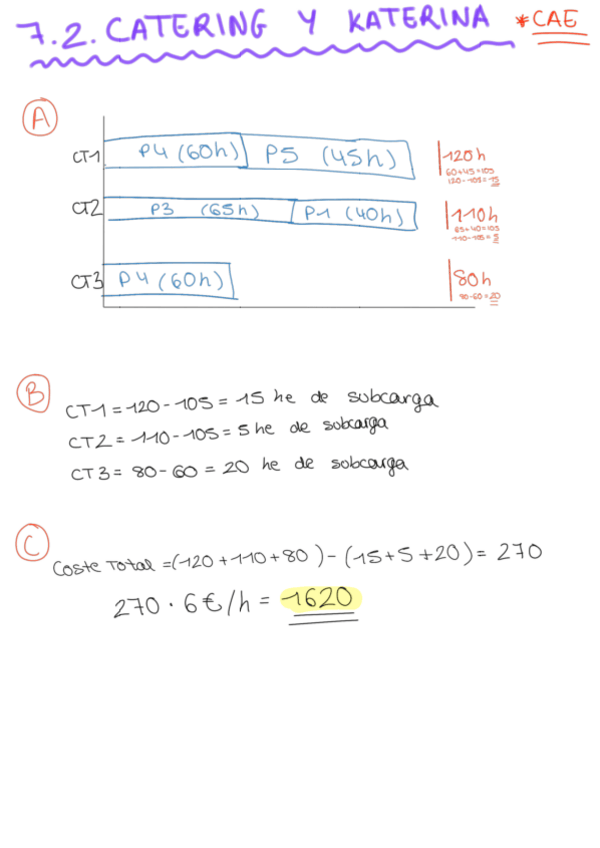 7.2. CATERING Y KATERINA *CAE
A
CT1 P4 (60h) P5 (45h) 120h
60+45=105
120-105=15
CT2 P3 (65h) P1 (40h) 110h
65+40=105
110-105=5
CT3 P4 (60h) 80h
80-60=20
B
CT1=120-105=15 he de subcarga
CT2=110-105=5 he de subcarga
CT3=80-60=20 he de subcarga
C
Coste Total =(120+110+80)-(15+5+20)=270
270·6€/h=1620